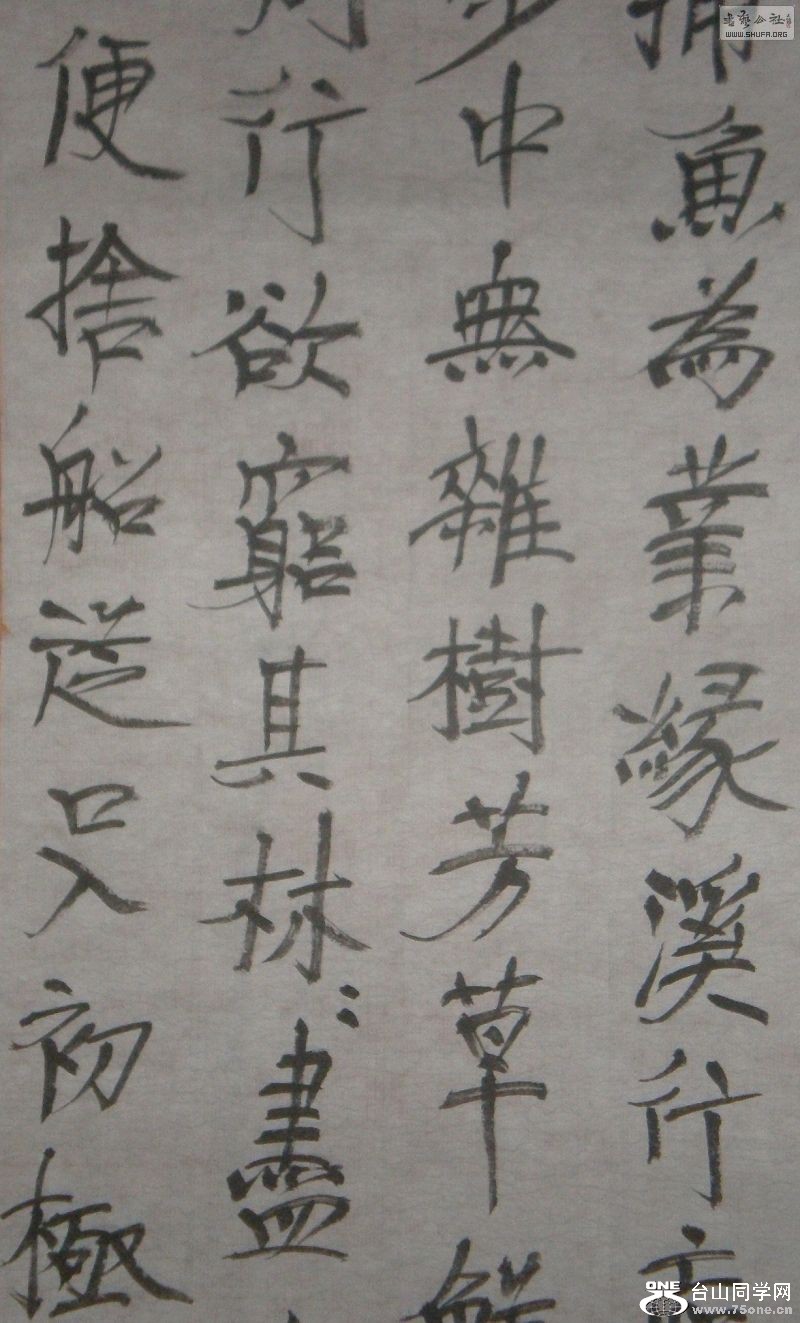 捕魚為業緣溪行忘
步中無雜樹芳草鮮
前行欲窮其林〻盡
便捨船從口入初極
书艺公社
WWW.SHUFA.ORG
ONE 台山同学网
www.75one.cn